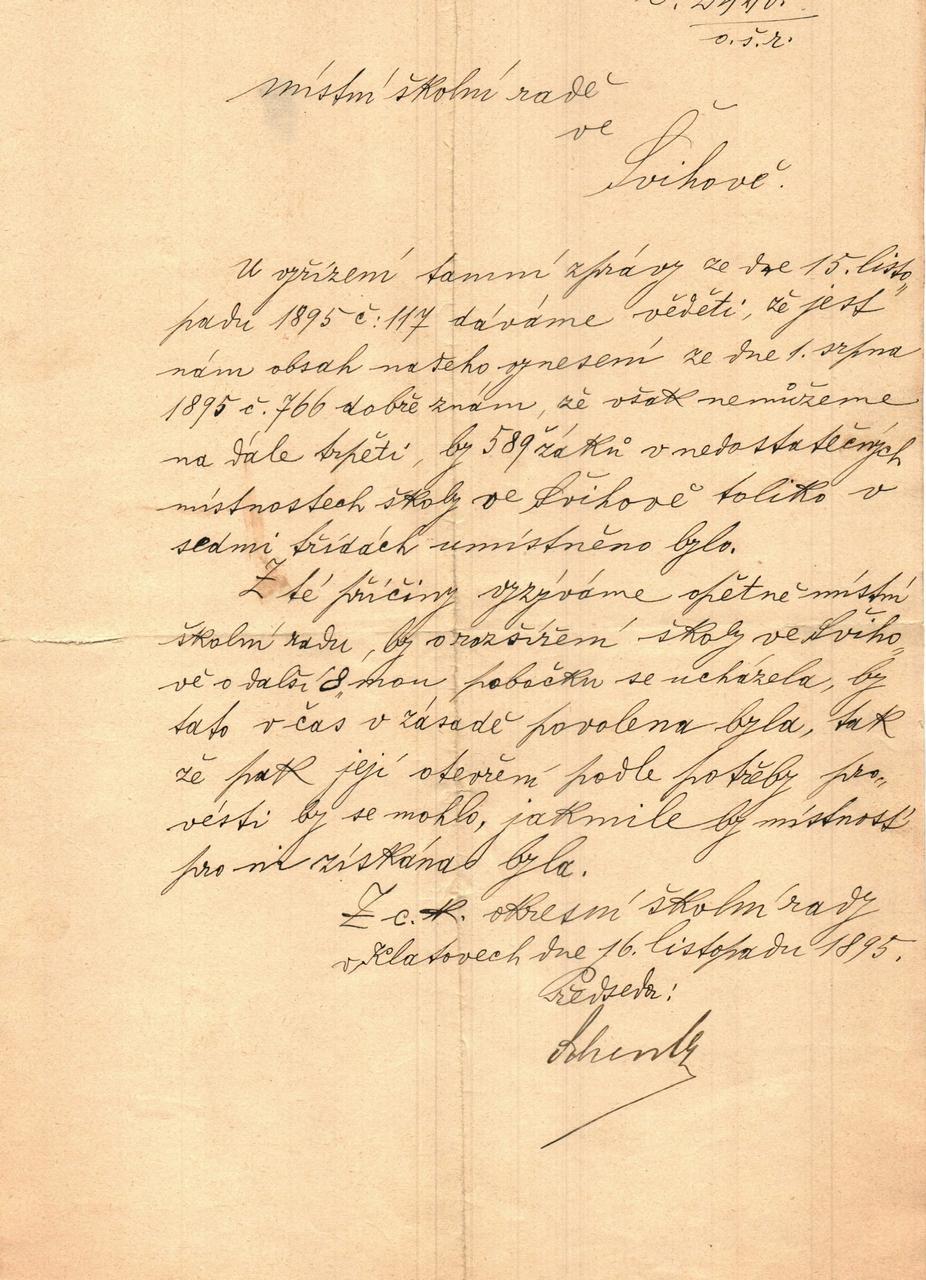 o. š. r.
Místní školní radě
ve
Švihově.
U vyřízení tamní zprávy ze dne 15. listo„
padu 1895 č: 117 dáváme věděti, že jest
nám obsah našeho vynesení ze dne 1. srpna
1895 č. 766 dobře znám, že však nemůžeme
na dále trpěti, by 589 žáků v nedostatečných
místnostech školy ve Švihově toliko v
sedmi třídách umístněno bylo.
Z té příčiny vyzýváme opětně místní
školní radu, by o rozšíření školy ve Šviho„
vě o další 8„mou pobočku se ucházela, by
tato v čas v zásadě povolena byla, tak
že pak její otevření podle potřeby pro„
vésti by se mohlo, jakmile by místnost
pro ni získána byla.
Z c. k. okresní školní rady
v Klatovech dne 16. listopadu 1895.
Předseda: